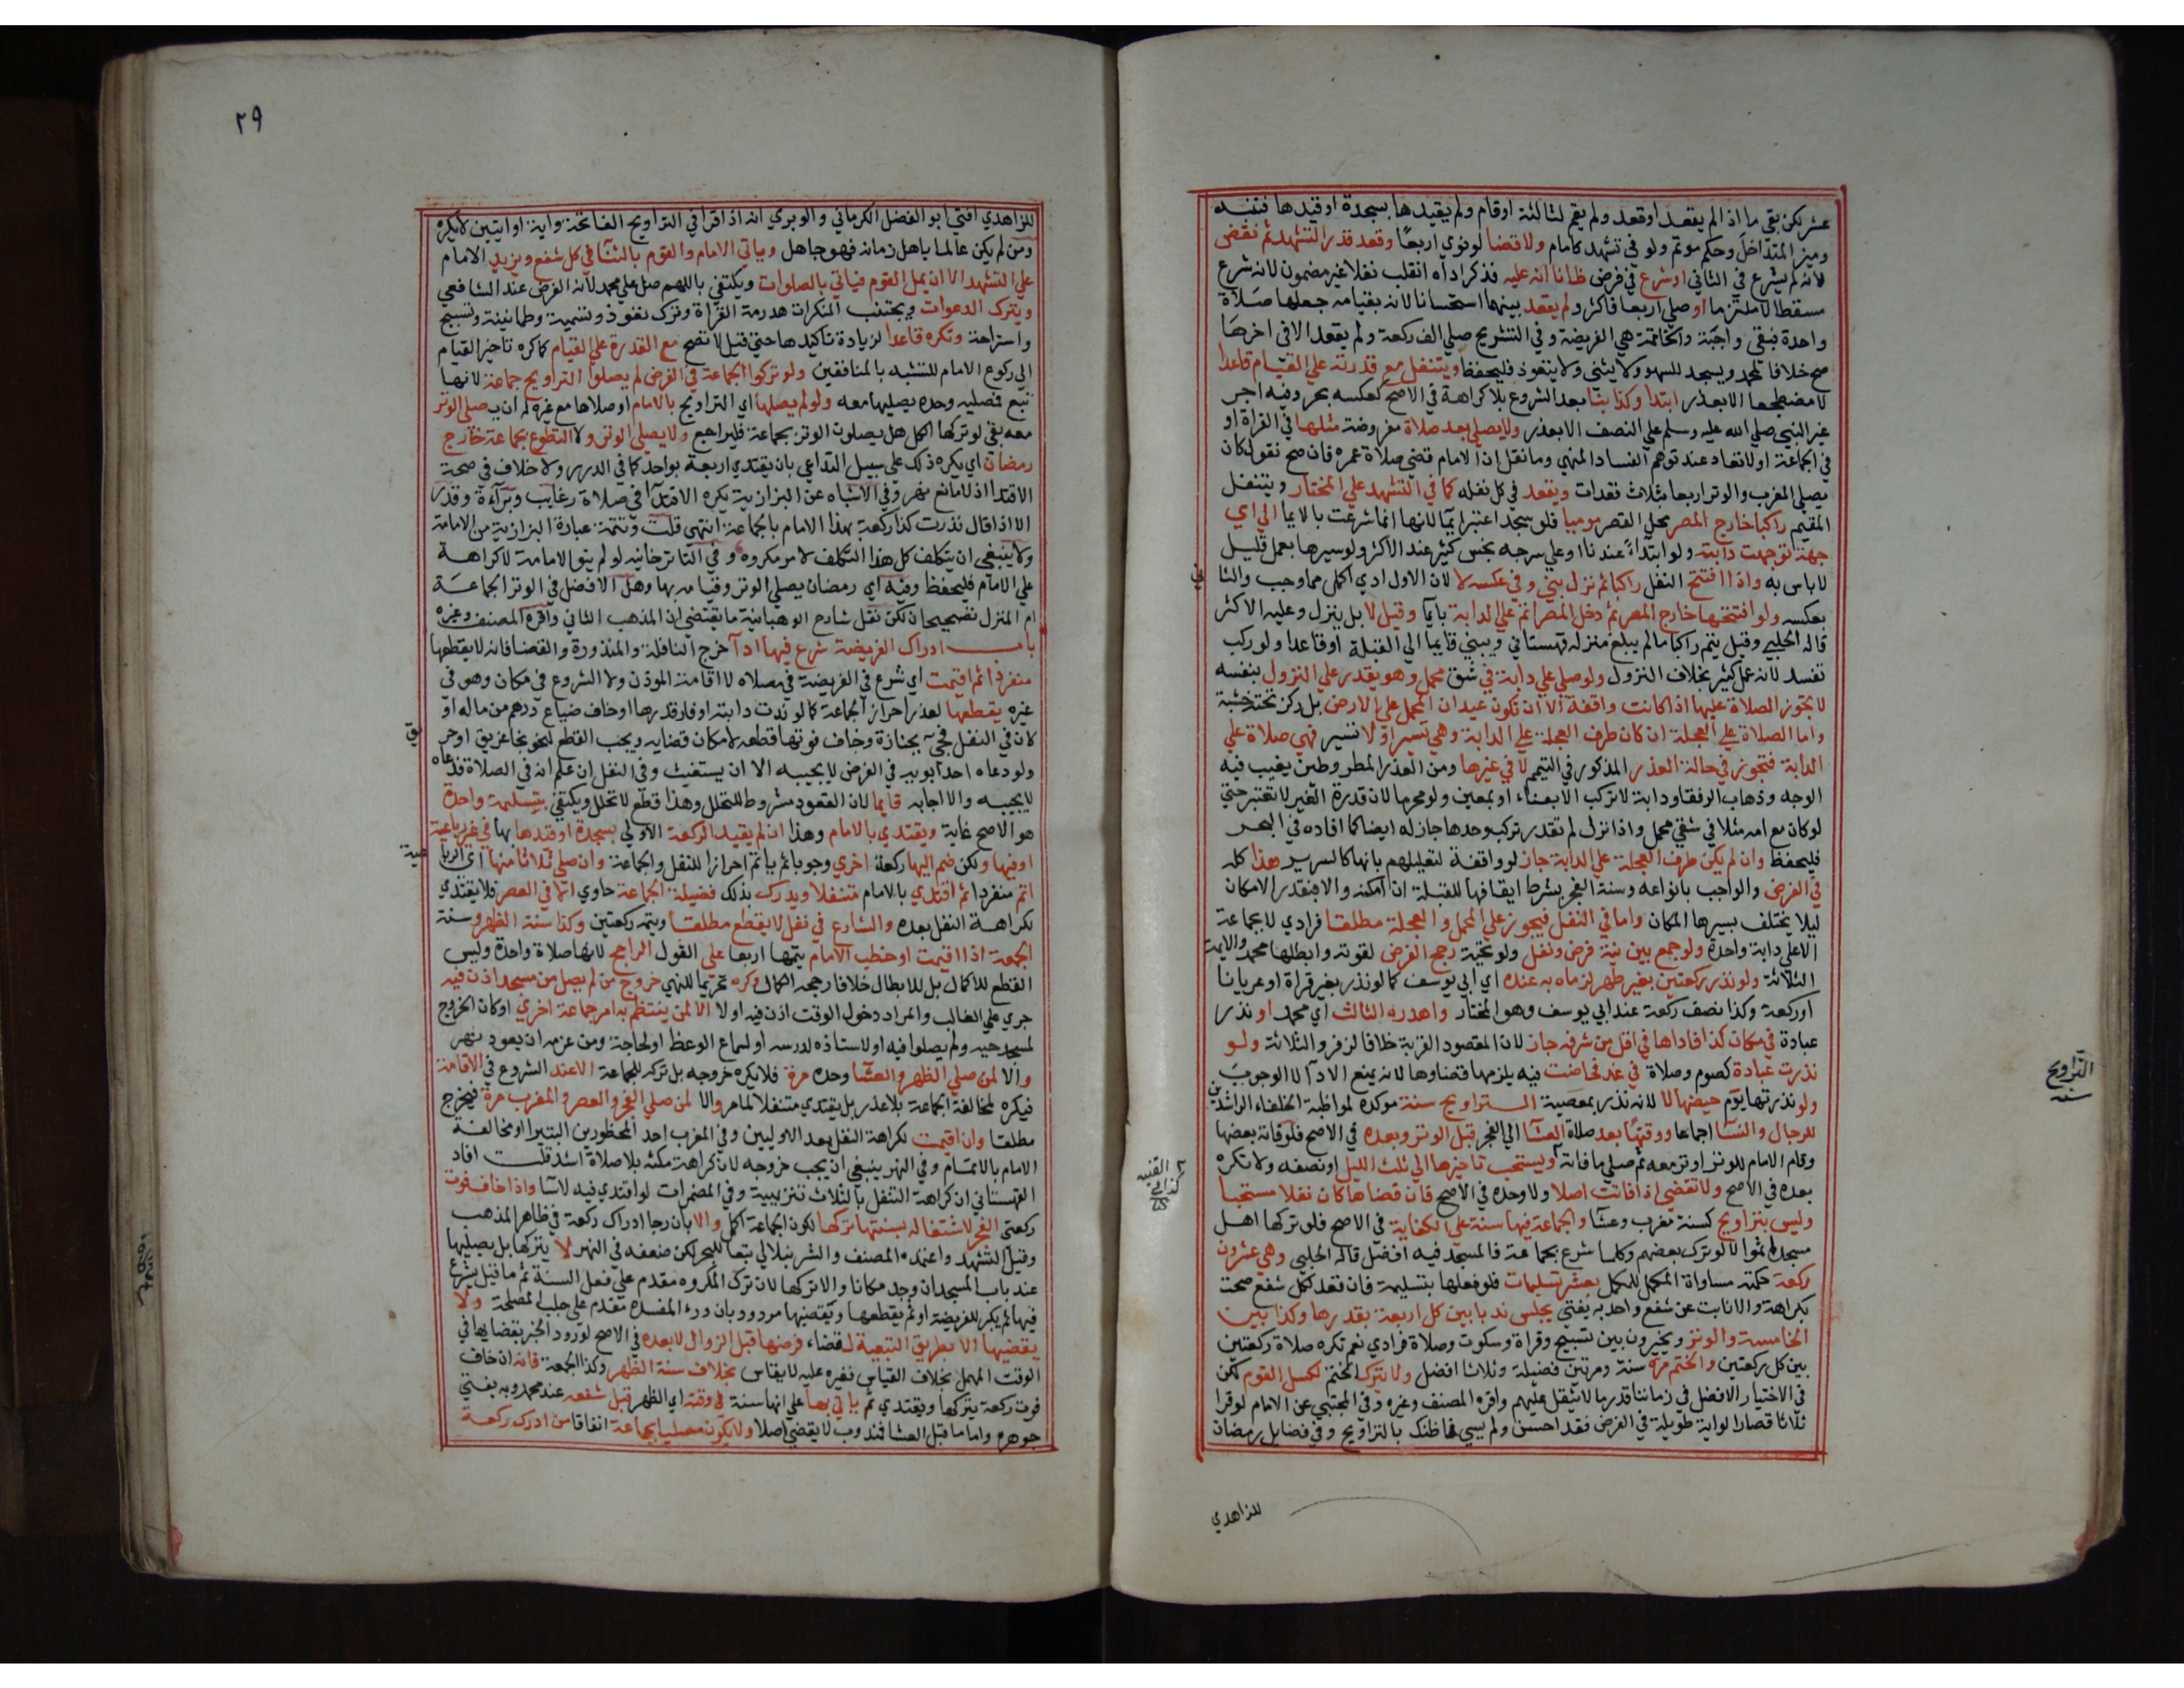 عشر لكن بقي ما اذا لم يقعد او قعد ولم يقم لثالثة او قام ولم يقيدها بسجدة او قيدها فتنبه
وميز المتداخل وحكم موتم ولو في تشهد كامام ولا قضا لو نوي اربعا وقعد قدر التشهد ثم نقض
لانه لم يشرع في الثاني او شرع في فرض ظانا انه عليه فذكر اداه انقلب نفلا غير مضمون لانه شرع
مسقطا لا ملتزما او صلي اربعا فاكثر ولم يقعد بينهما استحسانا لانه بقيامه جعلها صلاة
واحدة فتبقي واجبة والخاتمة هي الفريضة وفي التشريح صلي الف ركعة ولم يقعد الا في اخرها
صح خلافا لمحمد ويسجد للسهو ولا يثني ولا يتعوذ فليحفظ ويتنفل مع قدرته علي القيام قاعدا
لا مضطجعا الا بعذر ابتدا وكذا بنا بعد الشروع بلا كراهة في الاصح كعكسه بحر وفيه اجر
غير النبي صلي الله عليه وسلم علي النصف الا بعذر ولا يصلي بعد صلاة مفروضة مثلها في القراة او
في الجماعة او لا تعاد عند توهم الفساد للنهي وما نقل ان الامام قضي صلاة عمره فان صح نقول كان
يصلي المغرب والوتر اربعا بثلاث قعدات ويقعد في كل نفله كما في التشهد علي المختار ويتنفل
المقيم راكبا خارج المصر محل القصر موميا فلو سجد اعتبر ايما لانها انما شرعت بالايما الي اي
جهة توجهت دابته ولو ابتداء عندنا او علي سرجه نجس كثير عند الاكثر ولو سيرها بعمل قليل
لا باس به واذا افتتح النفل راكبا ثم نزل بني وفي عكسه لا لان الاول ادي اكمل مما وجب والثا
ني
بعكسه ولو افتتحها خارج المصر ثم دخل المصر اتم علي الدابة بايما وقيل لا بل ينزل وعليه الاكثر
قاله الحلبي وقيل يتم راكبا ما لم يبلغ منزله قهستاني ويبني قايما الي القبلة او قاعدا ولو ركب
تفسد لانه عمل كثير بخلاف النزول ولو صلي علي دابة في شق محمل وهو يقدر علي النزول بنفسه
لا تجوز الصلاة عليها اذا كانت واقفة الا ان تكون عيدان المحمل علي الارض بل ركز تحته خشبة
واما الصلاة علي العجلة ان كان طرف العجلة علي الدابة وهي تسير او لا تسير فهي صلاة علي
الدابة فتجوز في حالة العذر المذكور في التيمم لا في غيرها ومن العذر المطر وطين يغيب فيه
الوجه وذهاب الرفقا ودابة لا تركب الا بعناء او بمعين ولو محرما لان قدرة الغير لا تعتبر حتي
لو كان مع امه مثلا في شقي محمل واذا نزل لم تقدر تركب وحدها جاز له ايضا كما افاده في البحر
فليحفظ وان لم يكن طرف العجلة علي الدابة جاز لو واقفة لتعليلهم بانها كالسرير هذا كله
في الفرض والواجب بانواعه وسنة الفجر بشرط ايقافها للقبلة ان امكنه والا فبقدر الامكان
ليلا يختلف بسيرها المكان واما في النفل فيجوز علي المحمل والعجلة مطلقا فرادي لا بجماعة
الا علي دابة واحدة ولو جمع بين نية فرض ونفل ولو تحية رجح الفرض لقوته وابطلها محمد والايمة
الثلاثة ولو نذر ركعتين بغير طهر لزماه به عنده اي ابي يوسف كما لو نذر بغير قراة او عريانا
او ركعة وكذا نصف ركعة عند ابي يوسف وهو المختار واهدره الثالث اي محمد او نذر
عبادة في مكان كذا فاداها في اقل من شرفه جاز لان المقصود القربة خلافا لزفر والثلاثة ولو
نذرت عبادة كصوم وصلاة في غد فحاضت فيه يلزمها قضاوها لانه يمنع الادا لا الوجوب
ولو نذرتها يوم حيضها لا لانه نذر بمعصية التراويح سنة موكدة لمواظبة الخلفاء الراشدين
للرجال والنسا اجماعا ووقتها بعد صلاة العشا الي الفجر قبل الوتر وبعده في الاصح فلو فاته بعضها
وقام الامام للوتر اوتر معه ثم صلي ما فاته ويستحب تاخيرها الي ثلث الليل او نصفه ولا تكره
بعده في الاصح ولا تقضي اذا فاتت اصلا ولا وحده في الاصح فان قضاها كان نفلا مستحبا
وليس بتراويح كسنة مغرب وعشا والجماعة فيها سنة علي الكفاية في الاصح فلو تركها اهل
مسجد اثموا لا لو ترك بعضهم وكلما شرع بجماعة فالمسجد فيه افضل قاله الحلبي وهي عشرون
ركعة حكمته مساواة المكمل للمكمل بعشر تسليمات فلو فعلها بتسليمة فان قعد لكل شفع صحت
بكراهة والا نابت عن شفع واحد به يفتي يجلس ندبا بين كل اربعة بقدرها وكذا بين
الخامسة والوتر ويخيرون بين تسبيح وقراة وسكوت وصلاة فرادي نعم تكره صلاة ركعتين
بين كل ركعتين والختم مرة سنة ومرتين فضيلة وثلاثا افضل ولا يترك الختم لكسل القوم لكن
في الاختيار الافضل في زماننا قدر ما لا يثقل عليهم واقره المصنف وغيره وفي المجتبي عن الامام لو قرا
ثلاثا قصارا او اية طويلة في الفرض فقد احسن ولم يسيء فما ظنك بالتراويح وفي فضايل رمضان
للزاهدي
التراويح
سنة
القنيه
٢٩
للزاهدي افتي ابو الفضل الكرماني والوبري انه اذا قرا في التراويح الفاتحة واية او ايتين لا يكره
ومن لم يكن عالما باهل زمانه فهو جاهل وياتي الامام والقوم بالثنا في كل شفع ويزيد الامام
علي التشهد الا ان يمل القوم فياتي بالصلوات ويكتفي باللهم صل علي محمد لانه الفرض عند الشافعي
ويترك الدعوات ويجتنب المنكرات هدرمة القراة وترك تعوذ وتسمية وطمانينة وتسبيح
واستراحة وتكره قاعدا لزيادة تاكيدها حتي قيل لا تصح مع القدرة علي القيام كما كره تاخير القيام
الي ركوع الامام للتشبه بالمنافقين ولو تركوا الجماعة في الفرض لم يصلوا التراويح جماعة لانها
تبع فمصليه وحده يصليها معه ولو لم يصلها اي التراويح بالامام او صلاها مع غيره له ان يصلي الوتر
معه بقي لو تركها الكل هل يصلون الوتر بجماعة فليراجع ولا يصلي الوتر ولا التطوع بجماعة خارج
رمضان اي يكره ذلك علي سبيل التداعي بان يقتدي اربعة بواحد كما في الدرر ولا خلاف في صحة
الاقتدا اذ لا مانع نهر وفي الاشباه عن البزازية يكره الاقتدا في صلاة رغايب وبراءة وقدر
الا اذا قال نذرت كذا ركعة بهذا الامام بالجماعة انتهي قلت وتتمة عبارة البزازية من الامامة
ولا ينبغي ان يتكلف كل هذا التكلف لامر مكروه وفي التاترخانيه لو لم ينو الامامة لا كراهة
علي الامام فليحفظ وفيه اي رمضان يصلي الوتر وقيامه بها وهل الافضل في الوتر الجماعة
ام المنزل تصحيحان لكن نقل شارح الوهبانية ما يقتضي ان المذهب الثاني واقره المصنف وغيره
باب ادراك الفريضة شرع فيها ادا خرج النافلة والمنذورة والقضا فانه لا يقطعها
منفردا ثم اقيمت اي شرع في الفريضة في مصلاه لا اقامة الموذن ولا الشروع في مكان وهو في
غيره يقطعها لعذر احراز الجماعة كما لو ندت دابته او فار قدرها او خاف ضياع درهم من ماله او
كان في النفل فجيء بجنازة وخاف فوتها قطعه لامكان قضايه ويجب القطع لنحو نجا غريق او حر
يق
ولو دعاه احد ابويه في الفرض لا يجيبه الا ان يستغيث وفي النفل ان علم انه في الصلاة فدعاه
لا يجيبه والا اجابه قايما لان القعود مشروط للتحلل وهذا قطع لا تحلل ويكتفي بتسليمة واحدة
هو الاصح غاية ويقتدي بالامام وهذا ان لم يقيد الركعة الاولي بسجدة او قيدها بها في غير رباعية
او فيها ولكن ضم اليها ركعة اخري وجوبا ثم ياتم احرازا للنفل والجماعة وان صلي ثلاثا منها اي الربا
عية
اتم منفردا ثم اقتدي بالامام متنفلا ويدرك بذلك فضيلة الجماعة حاوي الا في العصر فلا يقتدي
لكراهة النفل بعده والشارع في نفل لا يقطع مطلقا ويتمه ركعتين وكذا سنة الظهر وسنة
الجمعة اذا اقيمت او خطب الامام يتمها اربعا علي القول الراجح لانها صلاة واحدة وليس
القطع للاكمال بل للابطال خلافا لما رجحه الكمال وكره تحريما للنهي خروج من لم يصل من مسجد اذن فيه
جري علي الغالب والمراد دخول الوقت اذن فيه او لا الا لمن ينتظم به امر جماعة اخري او كان الخروج
لمسجد حيه ولم يصلوا فيه او لاستاذه لدرسه او لسماع الوعظ او لحاجة ومن عزمه ان يعود نهر
والا لمن صلي الظهر والعشا وحده مرة فلا يكره خروجه بل تركه للجماعة الا عند الشروع في الاقامة
فيكره لمخالفة الجماعة بلا عذر بل يقتدي متنفلا لما مر والا لمن صلي الفجر والعصر والمغرب مرة فيخرج
مطلقا وان اقيمت لكراهة النفل بعد الاوليين وفي المغرب احد المحظورين البتيرا او مخالفة
الامام بالاتمام وفي النهر ينبغي ان يجب خروجه لان كراهة مكثه بلا صلاة اشد قلت افاد
القهستاني ان كراهة التنفل بالثلاث تنزيهية وفي المضمرات لو اقتدي فيه لاسا واذا خاف فوت
ركعتي الفجر لاشتغاله بسنتها تركها لكون الجماعة اكمل والا بان رجا ادراك ركعة في ظاهر المذهب
وقيل التشهد واعتمده المصنف والشرنبلالي تبعا للبحر لكن ضعفه في النهر لا يتركها بل يصليها
عند باب المسجد ان وجد مكانا والا تركها لان ترك المكروه مقدم علي فعل السنة ثم ما قيل يشرع
فيها ثم يكبر للفريضة او ثم يقطعها ويقضيها مردود بان درء المفسدة مقدم علي جلب المصلحة ولا
يقضيها الا بطريق التبعية لقضاء فرضها قبل الزوال لا بعده في الاصح لورود الخبر بقضايها في
الوقت المهمل بخلاف القياس فغيره عليه لا يقاس بخلاف سنة الظهر وكذا الجمعة فانه ان خاف
فوت ركعة يتركها ويقتدي ثم ياتي بها علي انها سنة في وقته اي الظهر قبل شفعه عند محمد وبه يفتي
جوهرة واما ما قبل العشا فمندوب لا يقضي اصلا ولا يكون مصليا بجماعة اتفاقا من ادرك ركعة